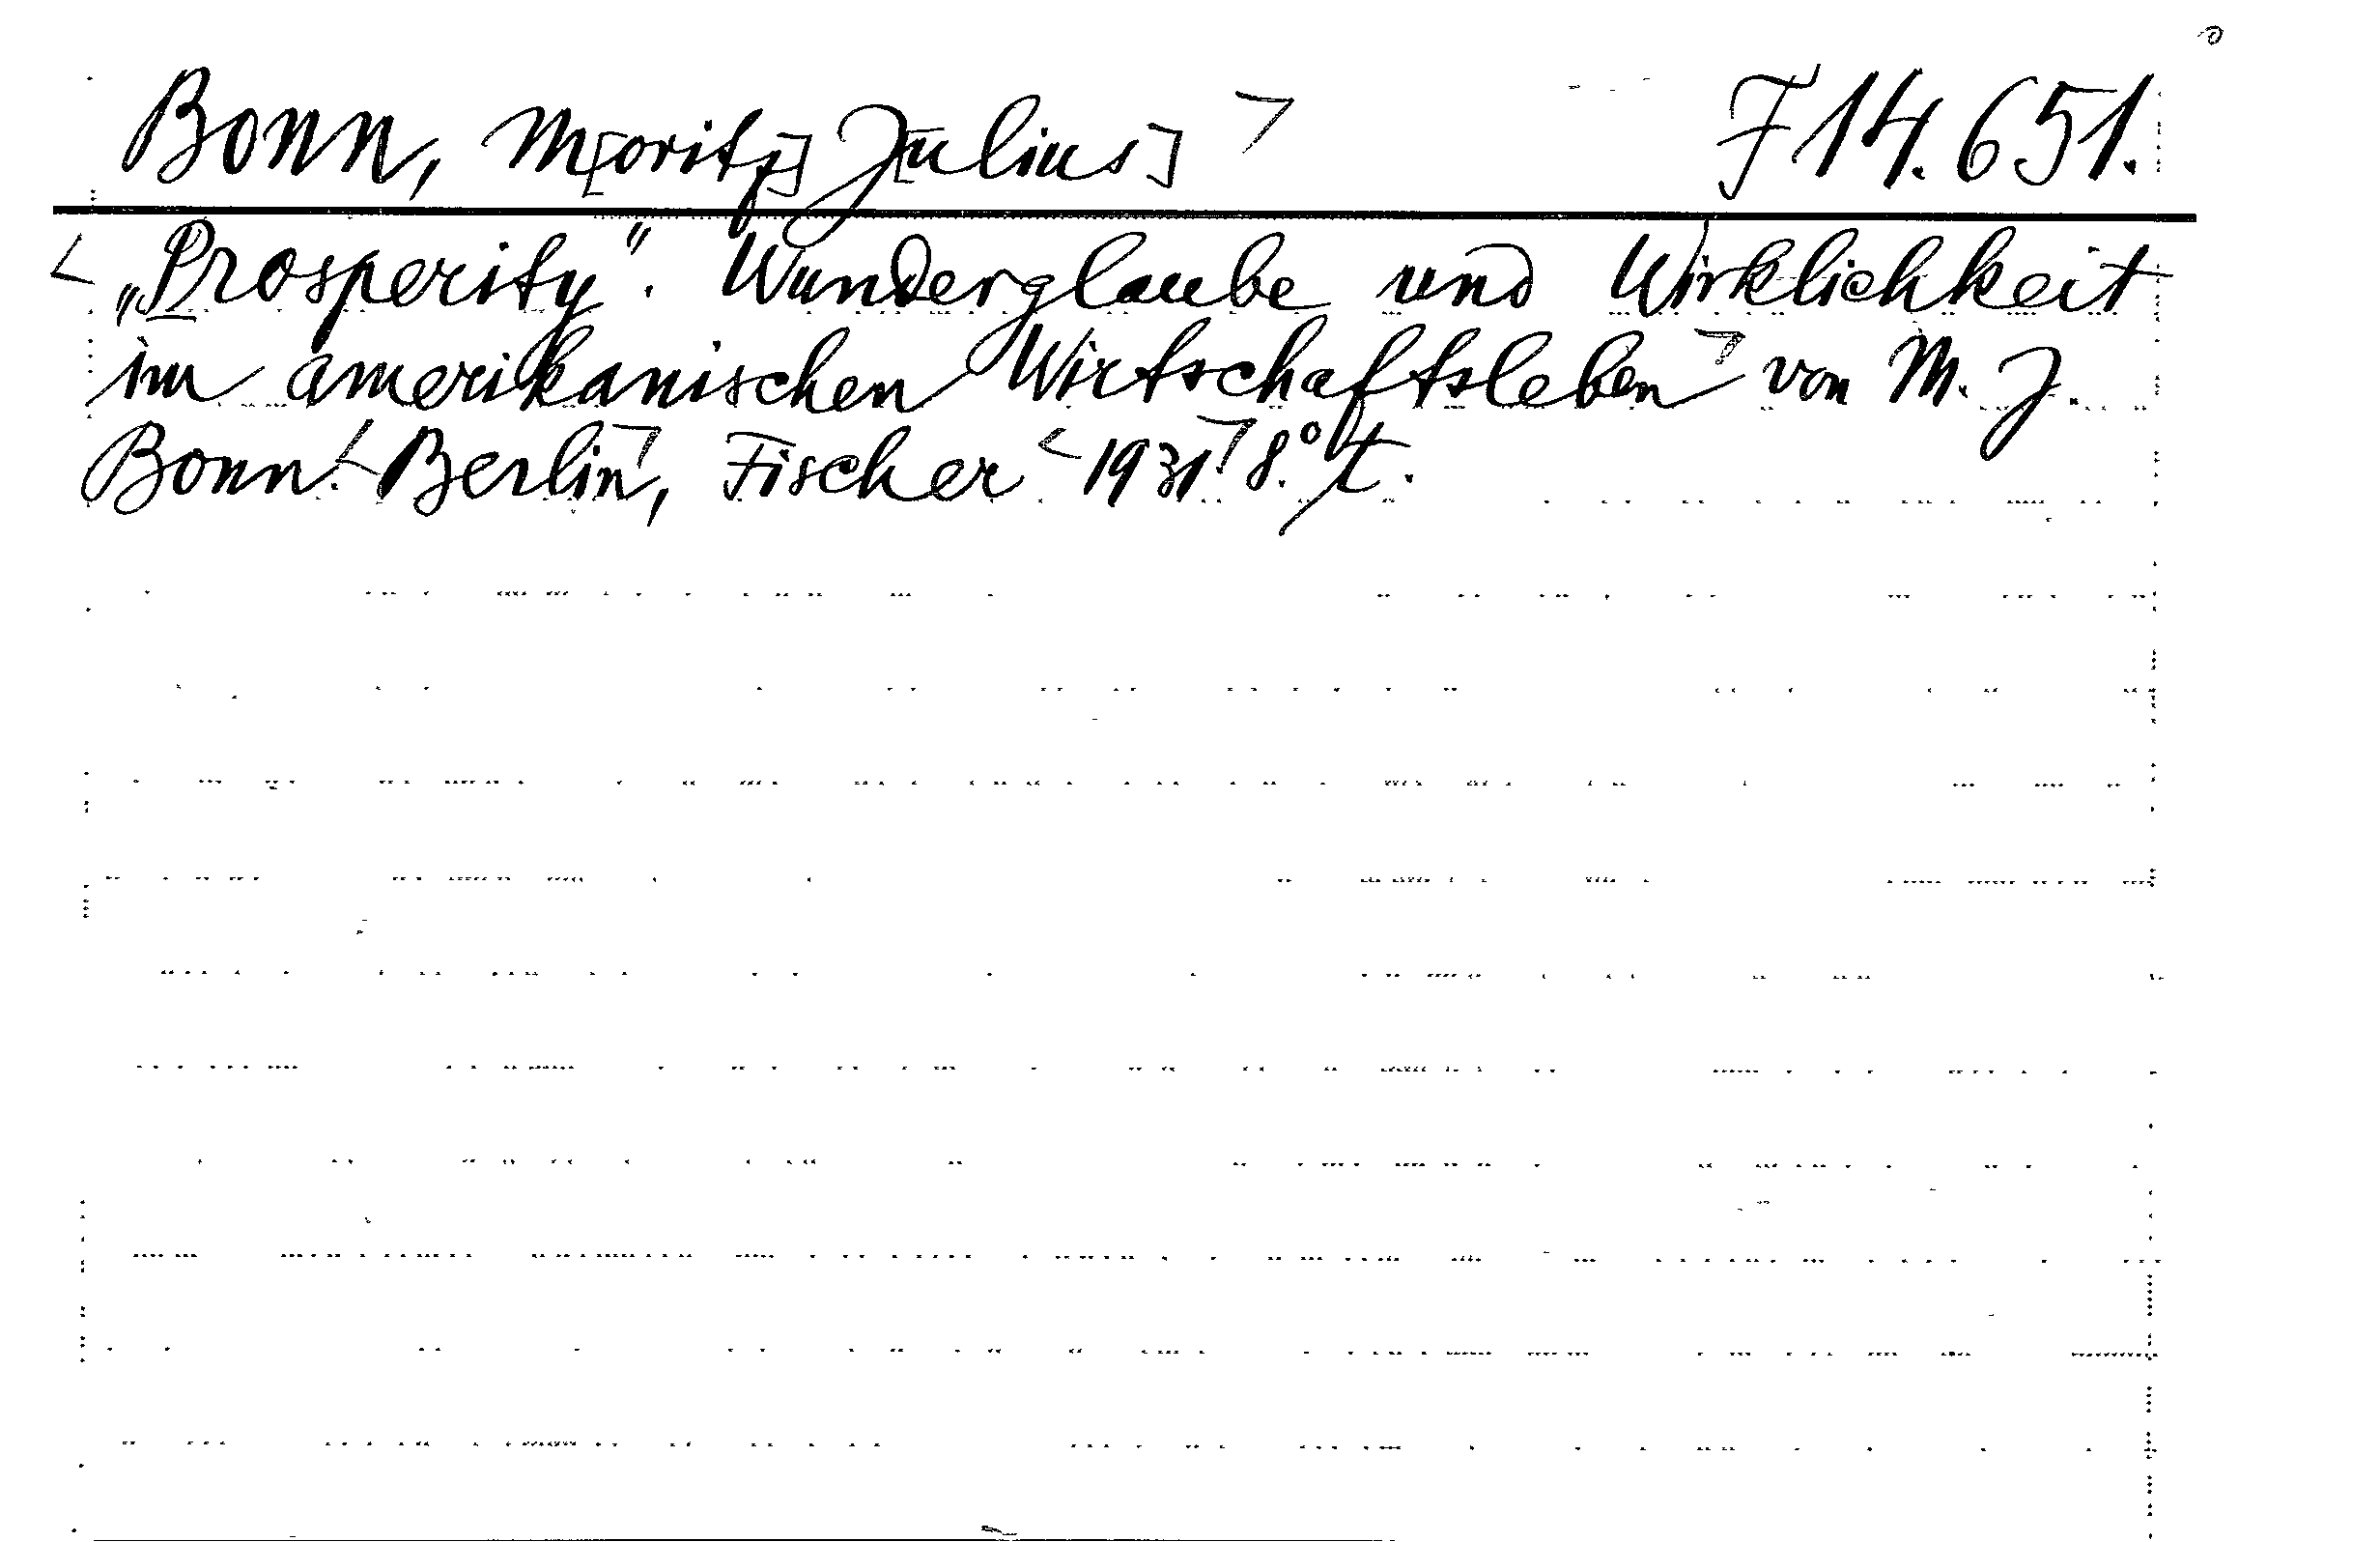 Bonn, M[oritz] J[ulius] F 14.651.
„Prosperity“. Wunderglaube und Wirklichkeit
im amerikanischen Wirtschaftsleben von M. J.
Bonn. Berlin, Fischer 1931. 8.° t.